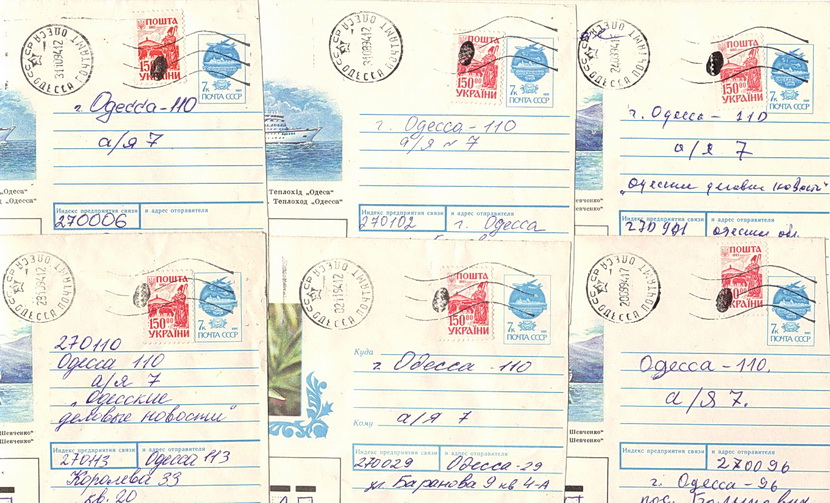 ПОШТА
150.00
УКРАЇНИ
7к
ПОЧТА СССР
СССР ОДЕССА ПОЧТАМТ ОДЕСА
г. Одесса-110
а/я 7
„Одеса“
Теплоход „Одесса“
Индекс предприятия связи и адрес отправителя
270006
ПОШТА
150.00
УКРАЇНИ
7к
ПОЧТА СССР
СССР ОДЕССА ПОЧТАМТ ОДЕСА
г. Одесса-110
а/я № 7
Теплохід „Одеса“
Теплоход „Одесса“
Индекс предприятия связи и адрес отправителя
270102 г. Одесса
ПОШТА
150.00
УКРАЇНИ
7к
ПОЧТА СССР
г. Одесса-110
а/я 7
Индекс предприятия связи и адрес отправителя
ПОШТА
150.00
УКРАЇНИ
7к
ПОЧТА СССР
СССР ОДЕССА ПОЧТАМТ ОДЕСА
270110
Одесса 110
а/я 7
„Одесские
деловые новости“
Шевченко“
Шевченко“
Индекс предприятия связи и адрес отправителя
270113 Одесса 113
Королева 33
кв. 20
ПОШТА
150.00
УКРАЇНИ
7к
ПОЧТА СССР
СССР ОДЕССА ПОЧТАМТ ОДЕСА
Куда
г. Одесса-110
Кому
а/я 7
Индекс предприятия связи и адрес отправителя
270029 Одесса-29
ул. Баранова 9 кв 4-А
ПОШТА
УКРАЇНИ
7к
ПОЧТА СССР
СССР ОДЕССА ПОЧТАМТ ОДЕСА
Одесса-110.
а/я 7.
Шевченко“
Шевченко“
Индекс предприятия связи и адрес отправителя
270096
г. Одесса-96